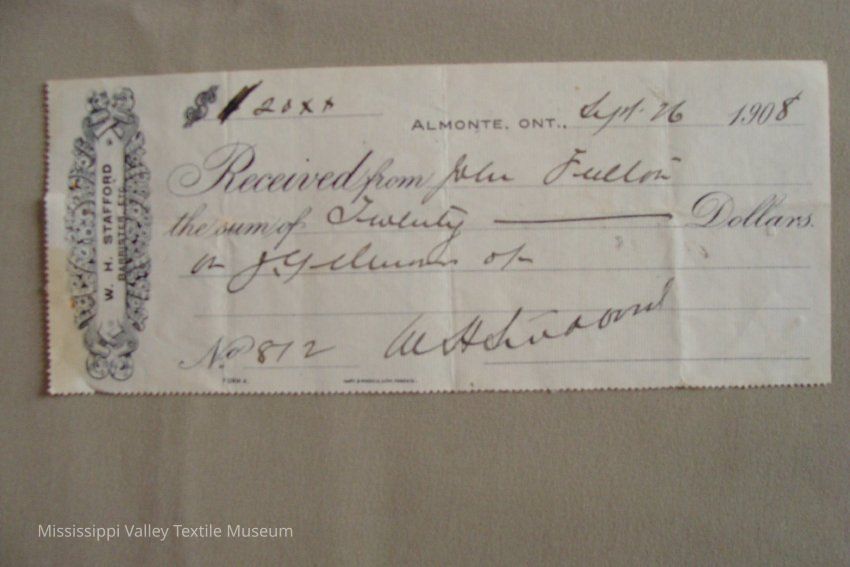 $ 20xx
ALMONTE, ONT., Sept 26 1908
Received from John Fulton
the sum of Twenty Dollars.
on
No 812 W H Stafford
W. H. STAFFORD
BARRISTER, ETC.
FORM A.
Mississippi Valley Textile Museum